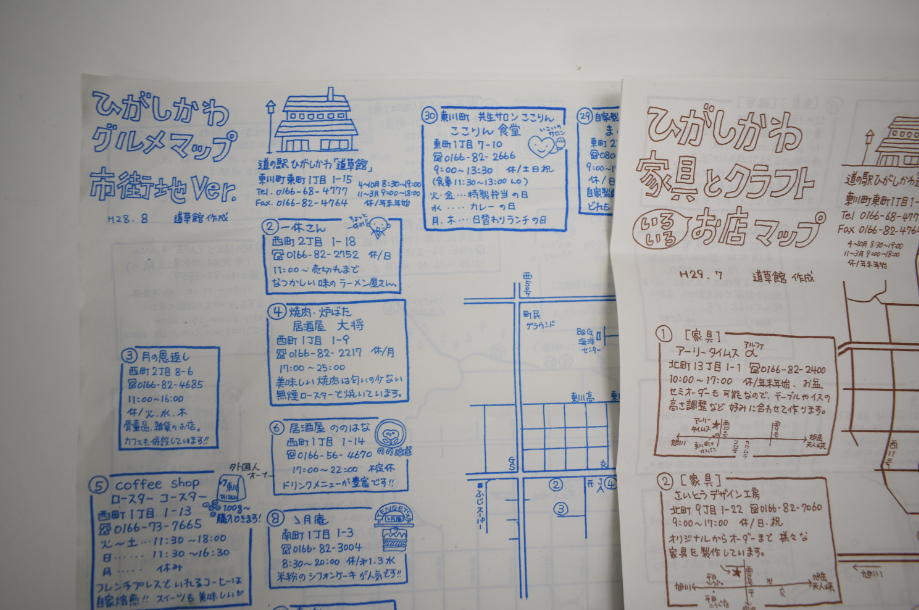 ひがしかわ
グルメマップ
市街地Ver.
H28.8 道草館作成
道の駅ひがしかわ「道草館」
東川町東町1丁目1-15
Tel. 0166-68-4777
Fax. 0166-82-4764
4~10月 8:30~19:00
11~3月 9:00~18:00
休/年末年始
㉚ 東川町 共生サロン ここりん
ここりん 食堂
東町1丁目7-10
☎0166-82-2666
9:00~13:30 休/土日祝
(食事11:30~13:00 LO)
火・金…特製弁当の日
水…カレーの日
月、木…日替わりランチの日
いこいの
サロン
㉙
東町2
② 一休さん
西町2丁目1-18
☎0166-82-2752 休/日
11:00~売切れまで
なつかしい味のラーメン屋さん。
④ 焼肉・炉ばた
居酒屋 大将
西町1丁目1-9
☎0166-82-2217 休/月
17:00~25:00
美味しい焼肉は匂いの少ない
無煙ロースターで焼いています。
③ 月の恩返し
西町2丁目8-6
☎0166-82-4685
11:00~16:00
休/火、水、木
骨董品、雑貨のお店。
カフェも併設しています!!
⑥ 居酒屋 ののはな
西町1丁目1-14
☎0166-56-4670
17:00~22:00 不定休
ドリンクメニューが豊富です!!
⑤ coffee shop
ロースター コースター
西町1丁目1-13
☎0166-73-7665
火~土…11:30~18:00
日……11:30~16:30
月……休み
フレンチプレスでいれるコーヒーは
自家焙煎!! スイーツも美味しいよ
外国人
オーナー
100g~
購入できます!
⑧ 〻月庵
南町1丁目1-3
☎0166-82-3004
8:30~20:00 休/第1.3水
米粉のシフォンケーキが人気です!!
町民
グラウンド
B&G
海洋
センター
東川高
ふじスーパー
②
③
JA
④
ひがしかわ
家具とクラフト
いろいろ
お店マップ
H29.7 道草館 作成
道の駅ひがしかわ
東川町東町1丁目1-
Tel 0166-68-47
Fax 0166-82-4764
4~10月 8:30~19:00
11~3月 9:00~18:00
休/年末年始
① [家具]
アーリータイムス α
アルファ
北町13丁目1-1 ☎0166-82-2400
10:00~17:00 休/年末年始、お盆
セミオーダーも可能なので、テーブルやイスの
高さ調整など 好みに合わせて作ります。
アーリー
タイムス
旭川
旭岳
天人峡
② [家具]
さいとうデザイン工房
北町9丁目1-22 ☎0166-82-7060
9:00~17:00 休/日、祝
オリジナルからオーダーまで 様々な
家具を製作しています。
旭川
旭岳
天人峡
旭川